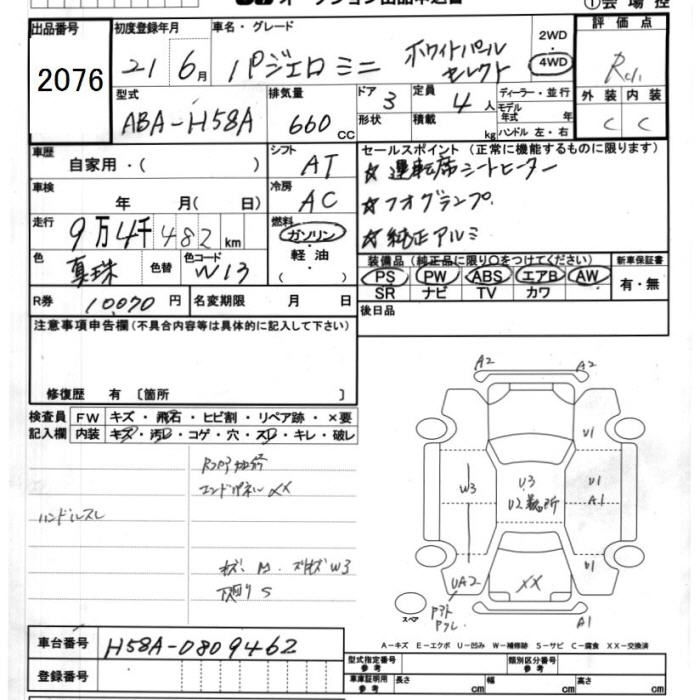 オークション出品申込書
①会場控
出品番号 2076
初度登録年月 21 6月
車名・グレード パジェロミニ ホワイトパール セレクト
2WD・4WD
評価点 R
外装 C 内装 C
型式 ABA-H58A
排気量 660 CC
ドア 3
形状
定員 4人
積載 kg
ディーラー・並行
モデル年式 年
ハンドル 左・右
車歴 自家用・( )
シフト AT
車検 年 月( 日)
冷房 AC
走行 9万4千482 km
燃料 ガソリン・軽油・( )
色 真珠 色替 色コード W13
R券 10,070円
名変期限 月 日
セールスポイント(正常に機能するものに限ります)
☆運転席シートヒーター
☆フォグランプ
☆純正アルミ
装備品(純正品に限り○をつけてください)
PS PW ABS エアB AW
SR ナビ TV カワ
新車保証書 有・無
後日品
注意事項申告欄(不具合内容等は具体的に記入して下さい)
修復歴 有 〔箇所 〕
検査員記入欄
FW キズ・飛石・ヒビ割・リペア跡・×要
内装 キズ・汚レ・コゲ・穴・スレ・キレ・破レ
エンドパネルXX
ハンドルスレ
キズ、M、スリキズW3
下廻りS
A2 A2
U1
W3 U3 U1
U2 A1
U1
UA2 XX
A1
スペアー
A-キズ E-エクボ U-凹み W-補修跡 S-サビ C-腐食 XX-交換済
車台番号 H58A-0809462
登録番号
型式指定番号 参考
類別区分番号 参考
車庫証明用 参考 長さ cm 幅 cm 高さ cm